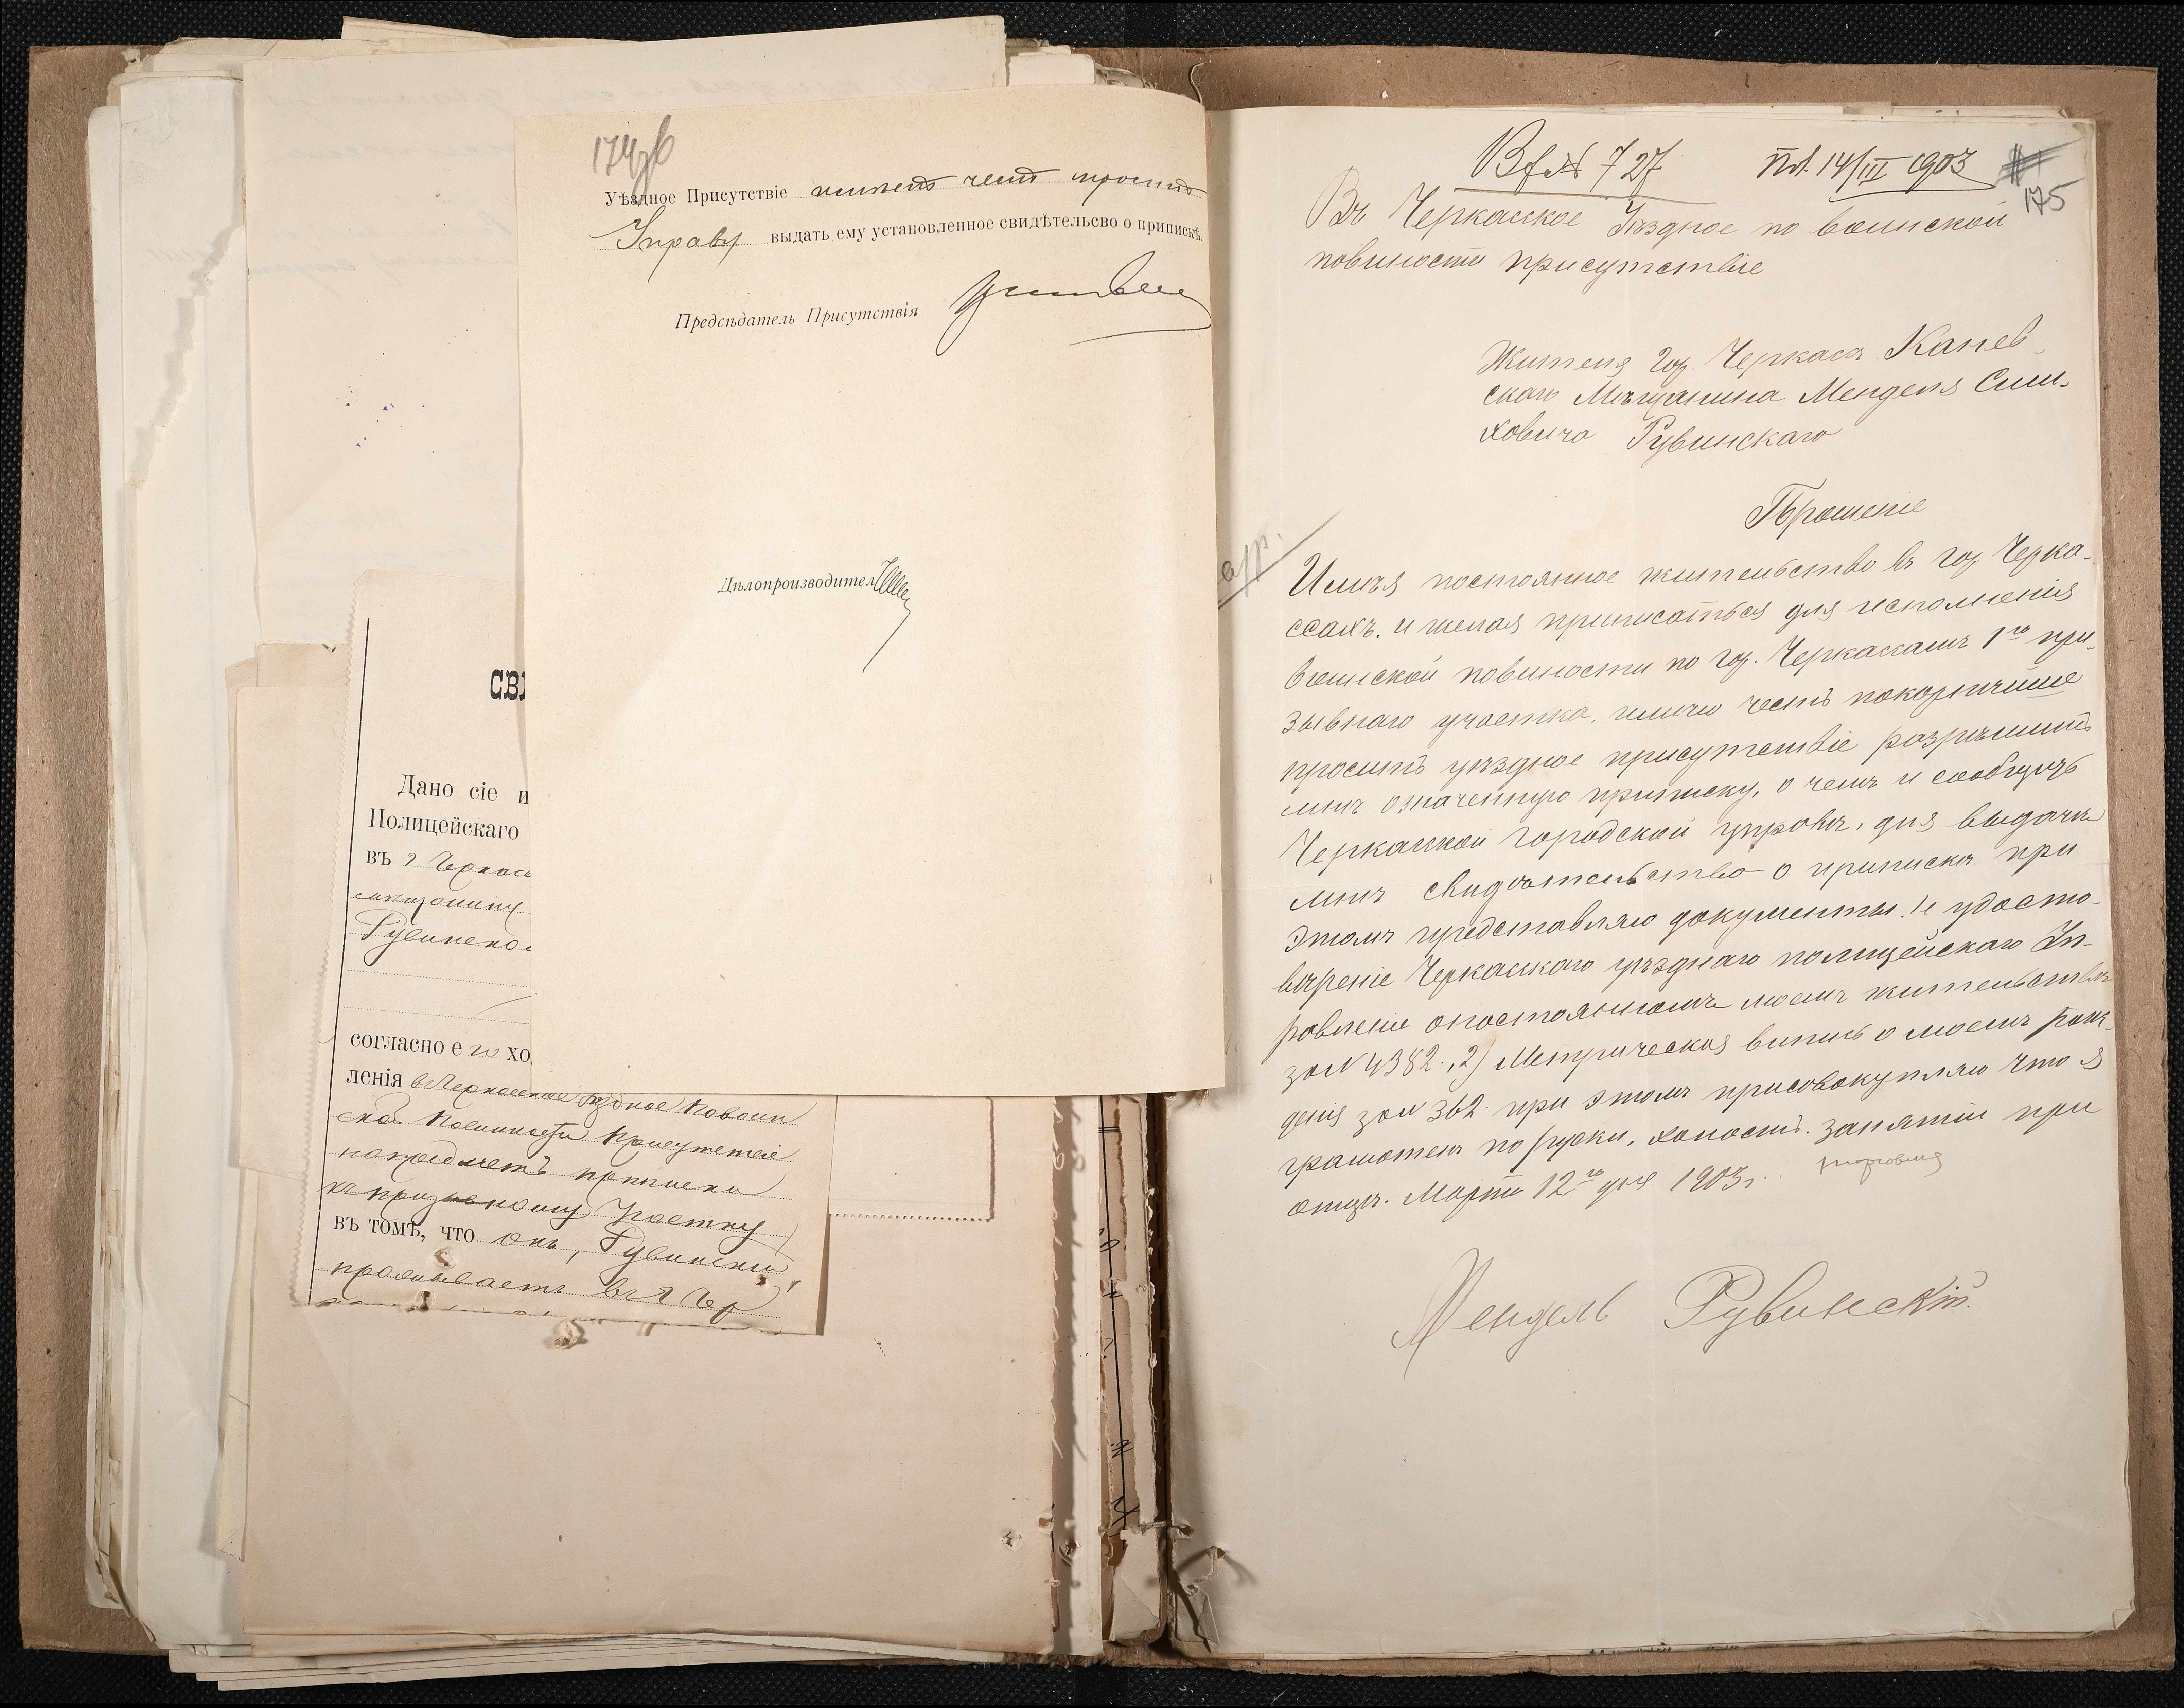 174об
Уѣздное Присутствіе имѣетъ честь проситъ
Управу выдать ему установленное свидѣтельсво о припискѣ.
Предсѣдатель Присутствія
Дѣлопроизводитель
СВИ
Дано сіе и
Полицейскаго
въ г Черкас
мѣщанину
Рувинско
согласно его хо
ленія въ Черкасское Уѣздное по воин
ской повинности Присутствіе
на предметъ приписки
къ призывному участку
въ томъ, что онъ, Рувинскій,
проживаетъ въ г Чер
Вх № 727 Пол. 14/III 1903
175
Въ Черкасское Уѣздное по воинской
повиности присутствіе
Жителя гор. Черкасъ Канев-
скаго Мѣщанина Менделя Сим-
ховича Рувинскаго
Прошеніе
Имѣя постоянное жительство въ гор. Черка-
ссахъ. и желая приписаться для исполненія
воинской повиности по гор. Черкассамъ 1го при-
зывнаго участка, имѣю честь покорнѣйше
просить уѣздное присутствіе разрѣшить
мнѣ означенную приписку, о чемъ и сообщить
Черкасской городской управѣ, для выдачи
мнѣ свидѣтельство о припискѣ при
этомъ представляю документы. 1е удосто-
вѣреніе Черкасскаго уѣзднаго полицейскаго Уп-
равленіи опостоянномъ моемъ жительствѣ
за № 4382., 2) Метрическая випись о моемъ рож-
деніи за № 362. при этомъ присовокупляю что я
грамотенъ по руски, холостъ. занятіи при
отцѣ. Марта 12го дня 1903г. торговля
Мендель Рувинскій.